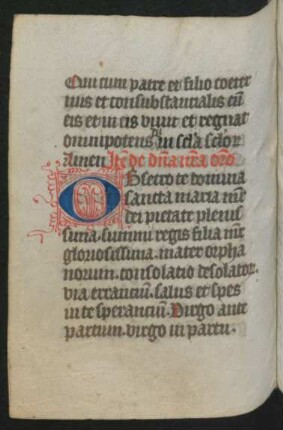 Qui cum patre et filio coeter
nus et consubstancialis cū
eis et in eis viuit et regnat
omnipotens in sc̄la sc̄lor
Amen Itē de dn̄a nr̄a orō
Obsecro te domina
sancta maria mr̄
dei pietate plenis
sima. summi regis filia mr̄
gloriosissima. mater orpha
norum. consolacio desolator.
via errancium. salus et spes
in te sperancium. Virgo ante
partum. virgo in partu.